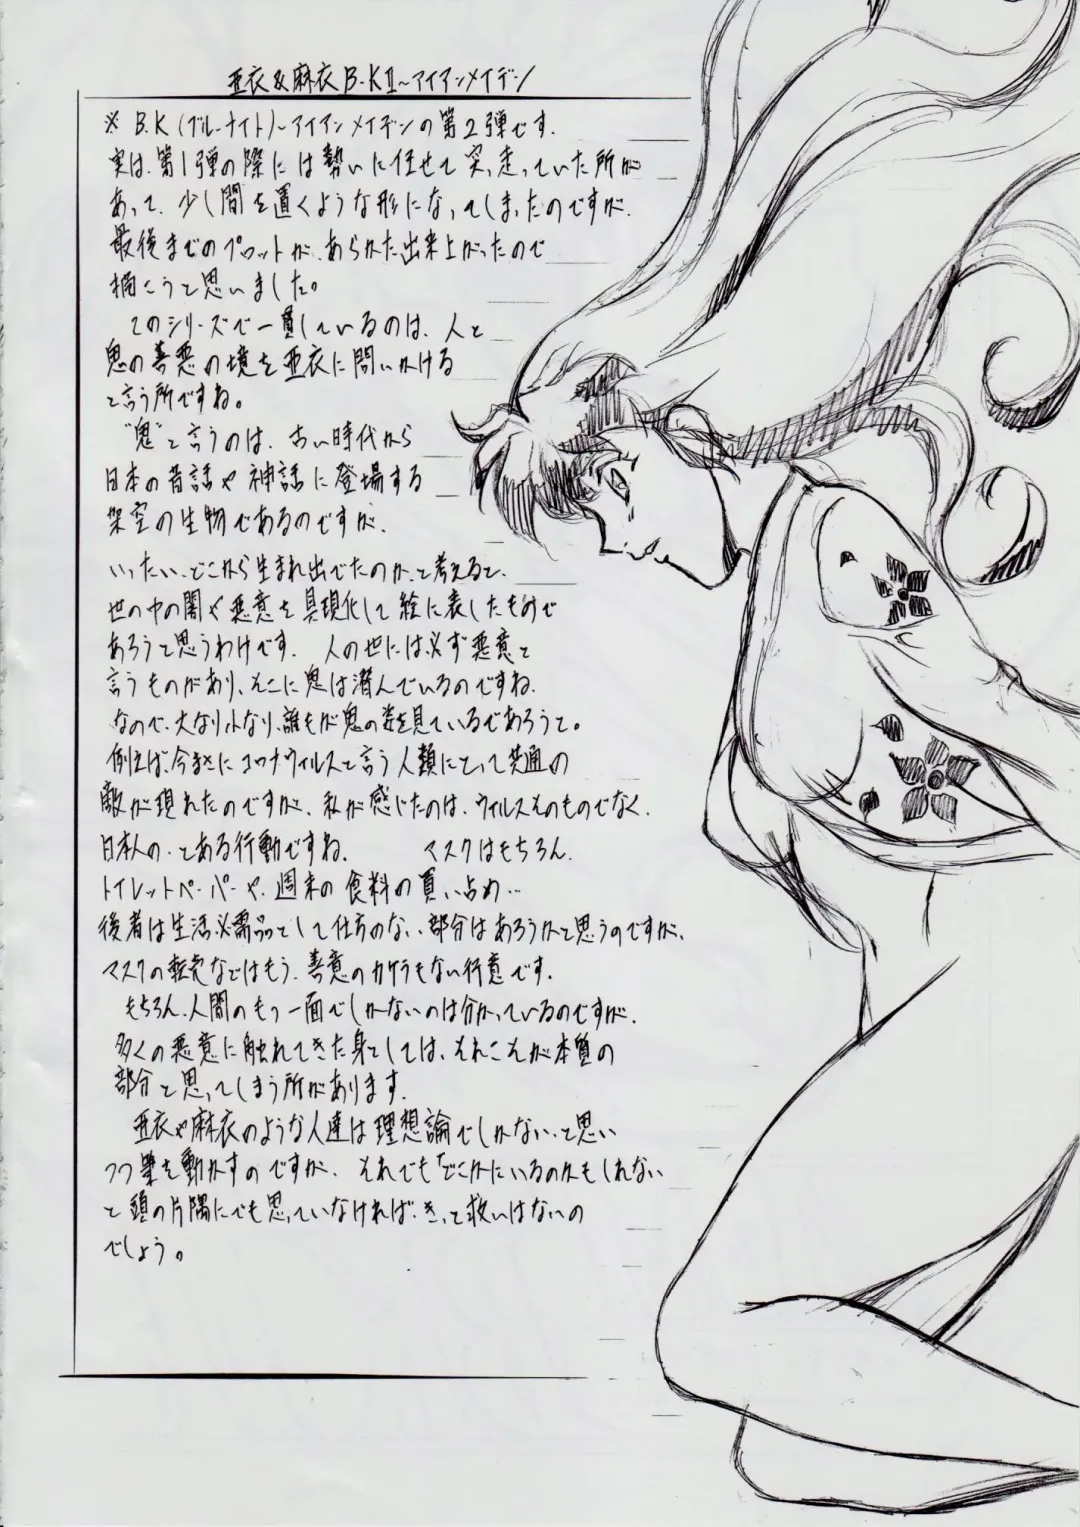 亜衣&麻衣B.KⅡ~アイアンメイデン
※ B.K(ブルーナイト)~アイアンメイデンの第2弾です.
実は、第1弾の際には勢いに任せて突っ走っていた所が
あって、少し間を置くような形になってしまったのですが、
最後までのプロットが、あらかた出来上がったので
描こうと思いました。
このシリーズで一貫しているのは、人と
鬼の善悪の境を亜衣に問いかける
と言う所ですね。
"鬼"と言うのは、古い時代から
日本の昔話や神話に登場する
架空の生物であるのですが、
いったい、どこから生まれ出でたのか、と考えると、
世の中の闇や悪意を具現化して絵に表したもので
あろうと思うわけです. 人の世には必ず悪意と
言うものがあり、そこに鬼は潜んでいるのですね.
なので、大なり小なり、誰もが鬼の姿を見ているであろうと。
例えば、今まさにコロナウィルスと言う人類にとって共通の
敵が現れたのですが、私が感じたのは、ウィルスそのものでなく、
日本人の、とある行動ですね. マスクはもちろん、
トイレットペーパーや、週末の食料の買い占め…
後者は生活必需品として仕方のない、部分はあろうかと思うのですが、
マスクの転売などはもう、善意のカケラもない行意です.
もちろん、人間のもつ一面でしかないのは分かっているのですが、
多くの悪意に触れてきた身としては、それこそが本質の
部分と思ってしまう所があります.
亜衣や麻衣のような人達は理想論でしかない、と思い
つつ筆を動かすのですが、それでも「どこかにいるのかもしれない
と頭の片隅にでも思っていなければ、きっと救いはないの
でしょう。